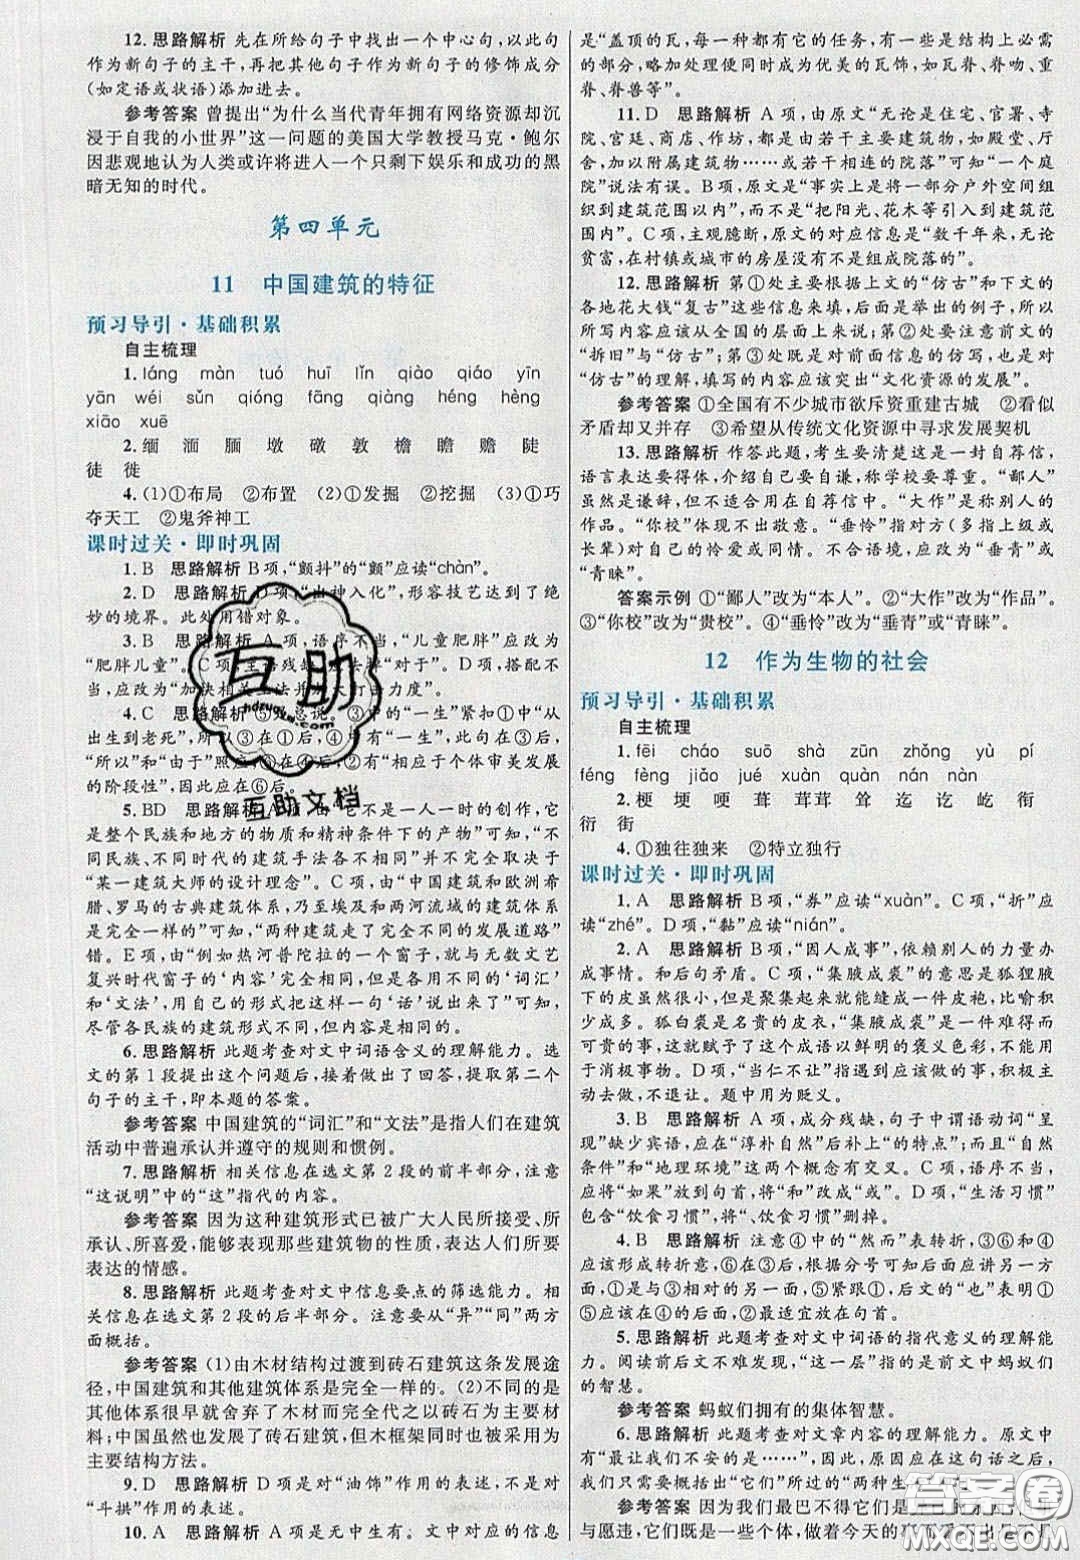 12. 思路解析 先在所给句子中找出一个中心句,以此句
作为新句子的主干,再把其他句子作为新句子的修饰成分
(如定语或状语)添加进去。
参考答案 曾提出“为什么当代青年拥有网络资源却沉
浸于自我的小世界”这一问题的美国大学教授马克·鲍尔
因悲观地认为人类或许将进入一个只剩下娱乐和成功的黑
暗无知的时代。
第四单元
11 中国建筑的特征
预习导引·基础积累
自主梳理
1. láng màn tuó huī lǐn qiào qiáo yīn
yān wéi sǔn qióng fāng qiàng héng hèng
xiāo xuē
2. 缅 湎 腼 墩 礅 敦 檐 瞻 赡 陡
徒 徙
4. (1)①布局 ②布置 (2)①发掘 ②挖掘 (3)①巧
夺天工 ②鬼斧神工
课时过关·即时巩固
1. B 思路解析 B项,“颤抖”的“颤”应读“chàn”。
2. D 思路解析 D项,“出神入化”,形容技艺达到了绝
妙的境界。此处用错对象。
3. B 思路解析 A项,语序不当,“儿童肥胖”应改为
“肥胖儿童”。C项,主语残缺,应去掉“使”。D项,搭配不
当,应改为“加快相关立法并加大打击力度”。
4. C 思路解析 ⑤是总说。③中的“一生”紧扣①中“从
出生到老死”,所以③在①后,④中有“一生”,此句在③后,
“所以”和“由于”照应,②在④后,⑥有“相应于个体审美发展
的阶段性”,因此应在⑥后。
5. BD 思路解析 A项,由“它不是一人一时的创作,它
是整个民族和地方的物质和精神条件下的产物”可知,“不
同民族、不同时代的建筑手法各不相同”并不完全取决于
“某一建筑大师的设计理念”。C项,由“中国建筑和欧洲希
腊、罗马的古典建筑体系,乃至埃及和两河流域的建筑体系
是完全一样的”可知,“两种建筑走了完全不同的发展道路”错
误。E项,由“例如热河普陀拉的一个窗子,就与无数文艺
复兴时代窗子的‘内容’完全相同,但是各用不同的‘词汇’
和‘文法’,用自己的形式把这样一句‘话’说出来了”可知,
尽管各民族的建筑形式不同,但内容是相同的。
6. 思路解析 此题考查对文中词语含义的理解能力。选
文的第1段提出这个问题后,接着做出了回答,提取第二个
句子的主干,即本题的答案。
参考答案 中国建筑的“词汇”和“文法”是指人们在建筑
活动中普遍承认并遵守的规则和惯例。
7. 思路解析 相关信息在选文第2段的前半部分,注意
“这说明”中的“这”指代的内容。
参考答案 因为这种建筑形式已被广大人民所接受、所
承认、所喜爱,能够表现那些建筑物的性质,表达人们所要
表达的情感。
8. 思路解析 此题考查对文中信息要点的筛选能力。相
关信息在选文第2段的后半部分。注意要从“异”“同”两方
面概括。
参考答案 (1)由木材结构过渡到砖石建筑这条发展途
径,中国建筑和其他建筑体系是完全一样的。(2)不同的是
其他体系很早就舍弃了木材而完全代之以砖石为主要材
料;中国虽然也发展了砖石建筑,但木框架同时也被采用为
主要结构方法。
9. D 思路解析 D项是对“油饰”作用的表述,不是对
“斗拱”作用的表述。
10. A 思路解析 A项是无中生有。文中对应的信息
是“盖顶的瓦,每一种都有它的任务,有一些是结构上必需
的部分,略加处理便同时成为优美的瓦饰,如瓦脊、脊吻、重
脊、脊兽等”。
11. D 思路解析 A项,由原文“无论是住宅、官署、寺
院、宫廷、商店、作坊,都是由若干主要建筑物,如殿堂、厅
舍,加以附属建筑物……或若干相连的院落”可知“一个庭
院”说法有误。B项,原文是“事实上是将一部分户外空间组
织到建筑范围以内”,而不是“把阳光、花木等引入到建筑范
围内”。C项,主观臆断,原文的对应信息是“数千年来,无论
贫富,在村镇或城市的房屋没有不是组成院落的”。
12. 思路解析 第①处主要根据上文的“仿古”和下文的
各地花大钱“复古”这些信息来填,后面是举出的例子,所以
所写内容应该从全国的层面上来说;第②处要注意前文的
“拆旧”与“仿古”;第③处既是对前面信息的仿写,也是对
“仿古”的理解,填写的内容应该突出“文化资源的发展”。
参考答案 ①全国有不少城市欲斥资重建古城 ②看似
矛盾却又并存 ③希望从传统文化资源中寻求发展契机
13. 思路解析 作答此题,考生要清楚这是一封自荐信,
语言表达要得体,介绍自己要自谦,称学校要尊重。“鄙人”
虽然是谦辞,但不适合用在自荐信中。“大作”是称别人的
作品。“你校”体现不出敬意。“垂怜”指对方(多指上级或
长辈)对自己的怜爱或同情。不合语境,应改为“垂青”或
“青睐”。
答案示例 ①“鄙人”改为“本人”。②“大作”改为“作品”。
③“你校”改为“贵校”。④“垂怜”改为“垂青”或“青睐”。
12 作为生物的社会
预习导引·基础积累
自主梳理
1. fēi cháo suō shà zūn zhǒng yù pí
féng fèng jiǎo jué xuàn quàn nán nàn
2. 梗 埂 哽 葺 茸茸 耸 迄 讫 屹 衔
衍 街
4. ①独往独来 ②特立独行
课时过关·即时巩固
1. A 思路解析 B项,“券”应读“xuàn”。C项,“折”应
读“zhé”。D项,“黏”应读“nián”。
2. A 思路解析 B项,“因人成事”,依赖别人的力量办
成事情。和后句矛盾。C项,“集腋成裘”的意思是狐狸腋下
的皮虽然很小,但是聚集起来就能缝成一件皮袍,比喻积
少成多。狐白裘是名贵的皮衣,“集腋成裘”是一件难得而
可贵的事,这就赋予了这个成语以鲜明的褒义色彩,不能用
于消极事物。D项,“当仁不让”指遇到应该做的事情,积极主
动去做,不退让。题中用为贬义。
3. B 思路解析 A项,成分残缺,句子中谓语动词“呈
现”缺少宾语,应在“淳朴自然”后补上“的特点”;而且“自然
条件”和“地理环境”这两个概念有交叉。C项,语序不当,应
将“如果”放到句首,将“和”改成“或”。D项,“生活习惯”
包含“饮食习惯”,将“、饮食习惯”删掉。
4. B 思路解析 注意④中的“然而”表转折,③⑥和④
应形成转折意味,⑥在③后。根据分号可知后面应讲另一方
面,①是与③相对的另一面,⑤紧跟①,⑤中的“也”表明①
⑤应该在④的后面,②最适宜放在句首。
5. 思路解析 此题考查对文中词语的指代意义的理解能
力。阅读前后文不难发现,“这一层”指的是前文中蚂蚁们
的智慧。
参考答案 蚂蚁们拥有的集体智慧。
6. 思路解析 此题考查对文章内容的理解能力。原文中
有“最让我们不安的是……”,因此,原因应在这句话之后,
我们只要概括出“它们”所过的“两种生活”即可。
参考答案 因为我们最巴不得它们是
与愿违,它们既是一些个体,做着今天的
互助
hdzuoye.com
互助文档
答案圈
MXQE.COM